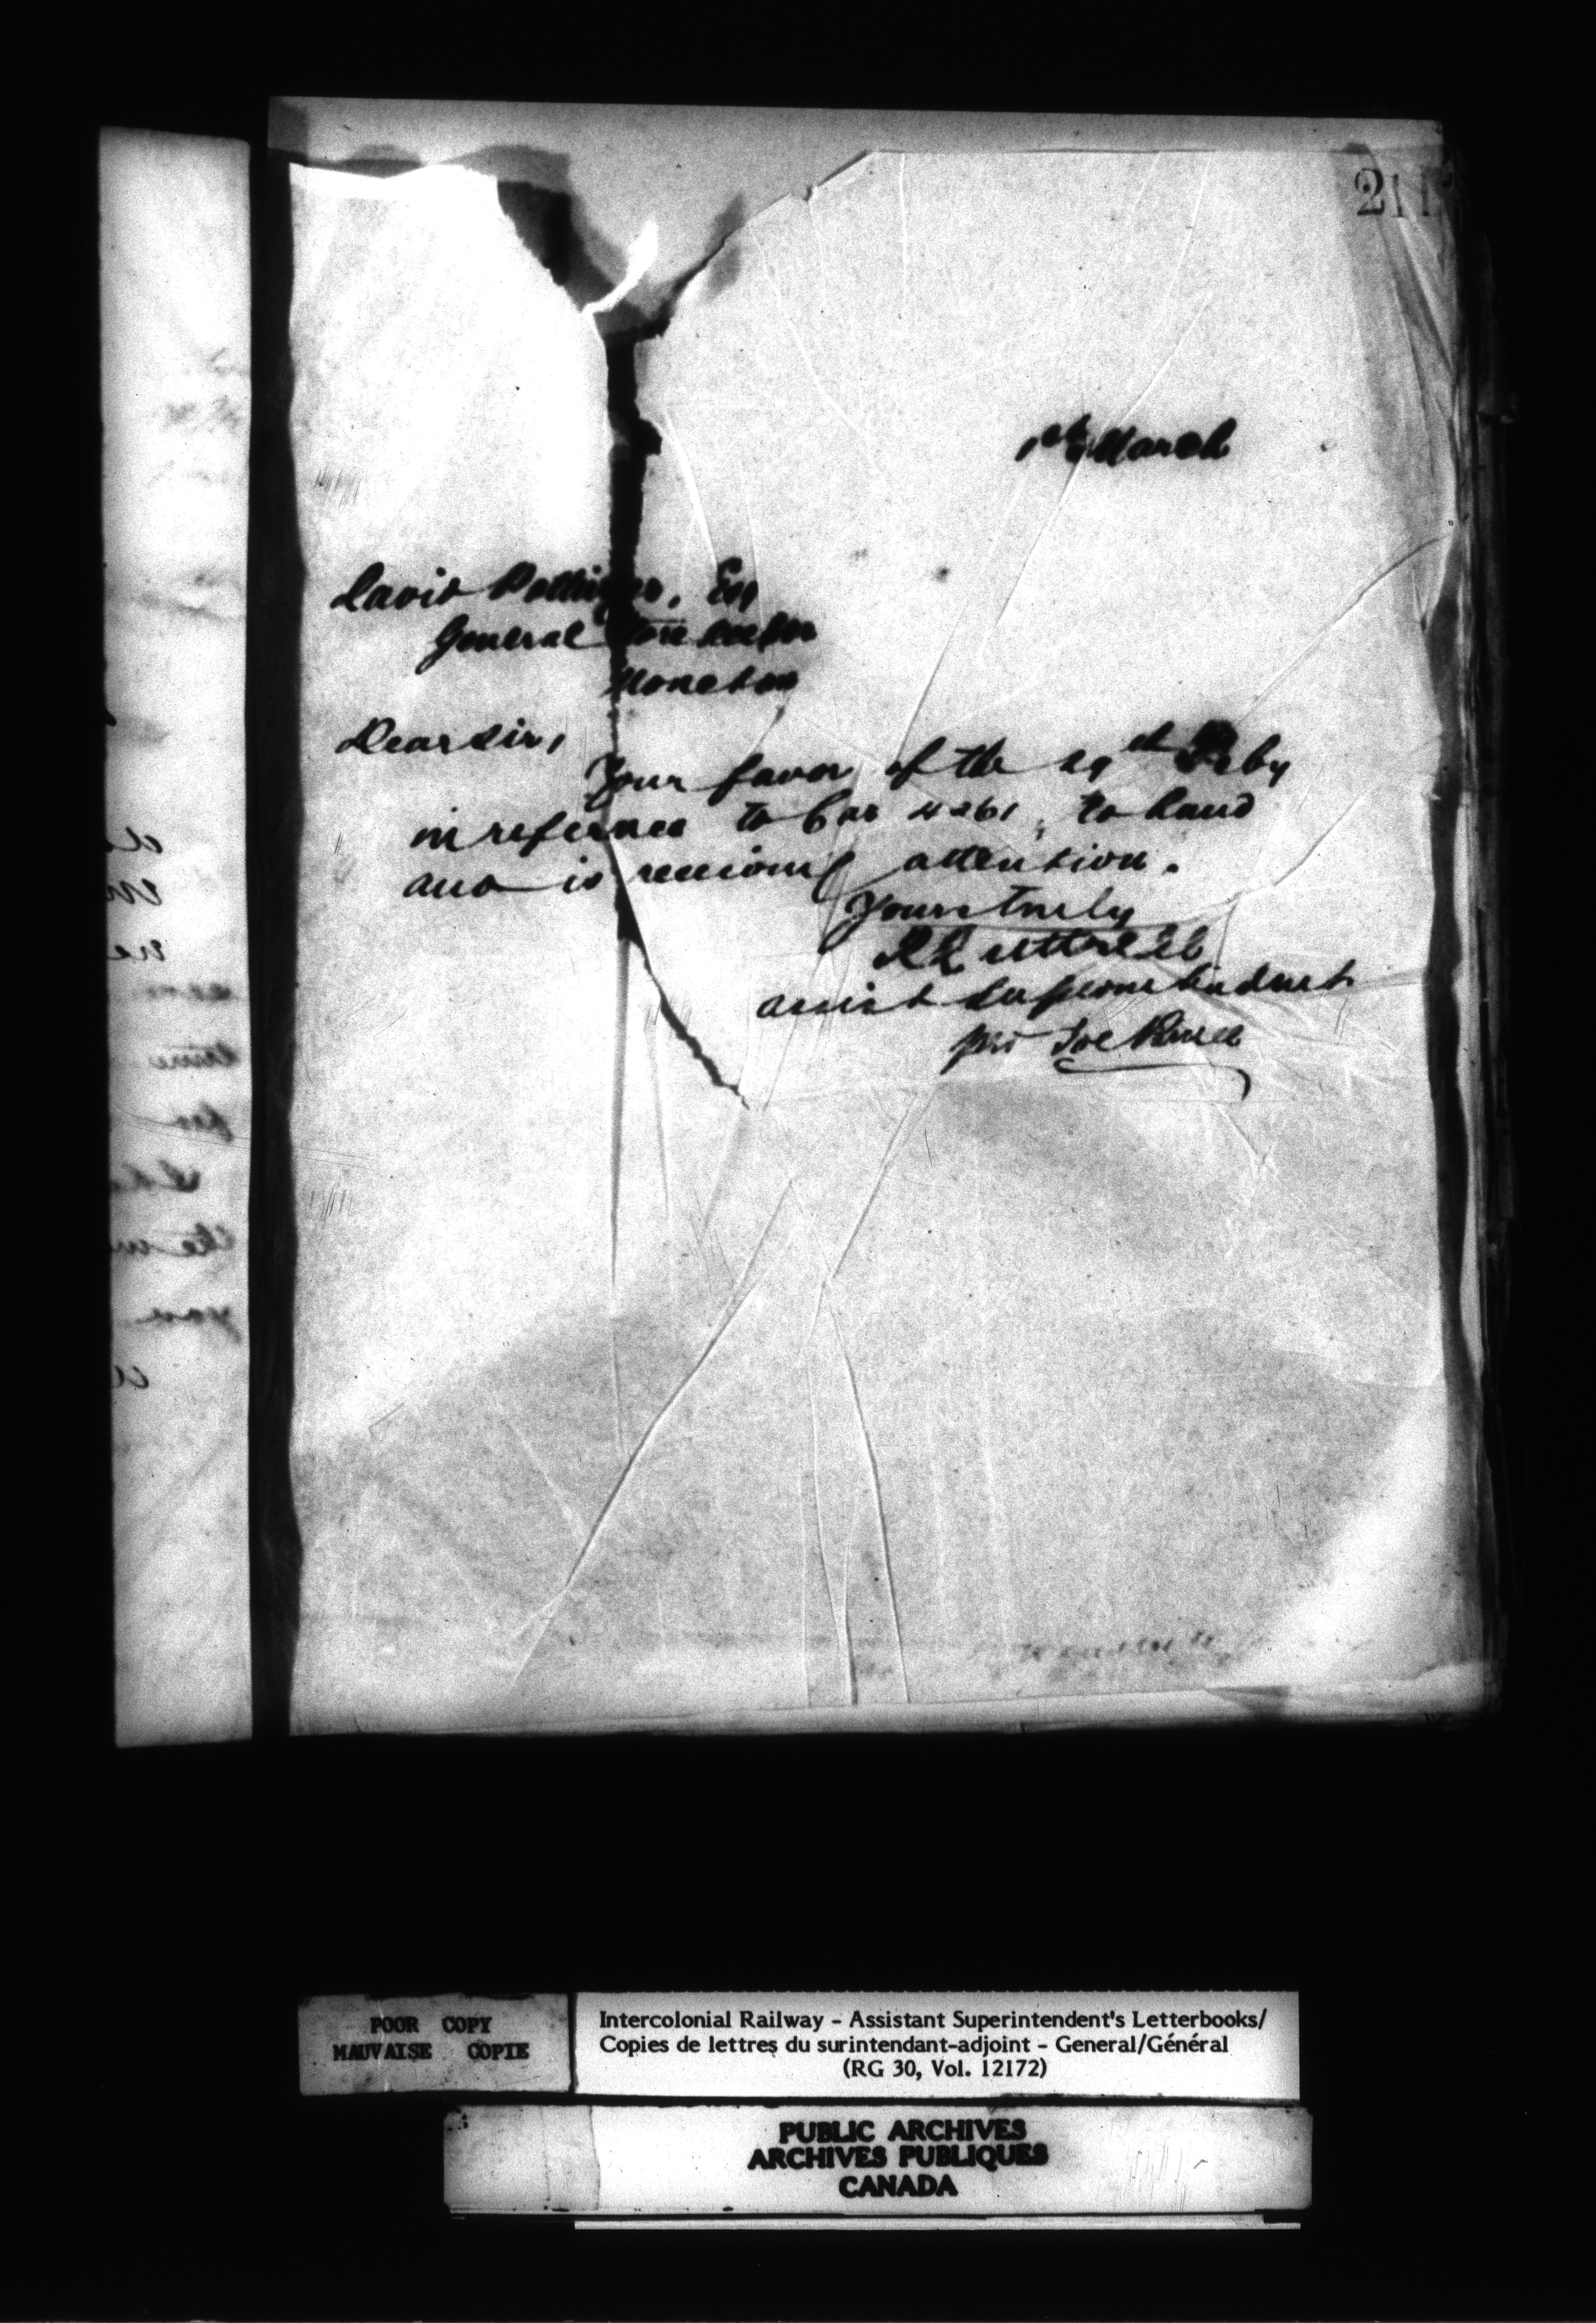 211
1st March
David Pottinger, Esq
General Store keeper
Moncton
Dear Sir,
Your favor of the 29th Feby
in reference to Car 4261, to hand
and is receiving attention.
Yours truly
R Luttrell
Assist Superintendent
per Joe
POOR COPY
MAUVAISE COPIE
Intercolonial Railway - Assistant Superintendent's Letterbooks/
Copies de lettres du surintendant-adjoint - General/Général
(RG 30, Vol. 12172)
PUBLIC ARCHIVES
ARCHIVES PUBLIQUES
CANADA